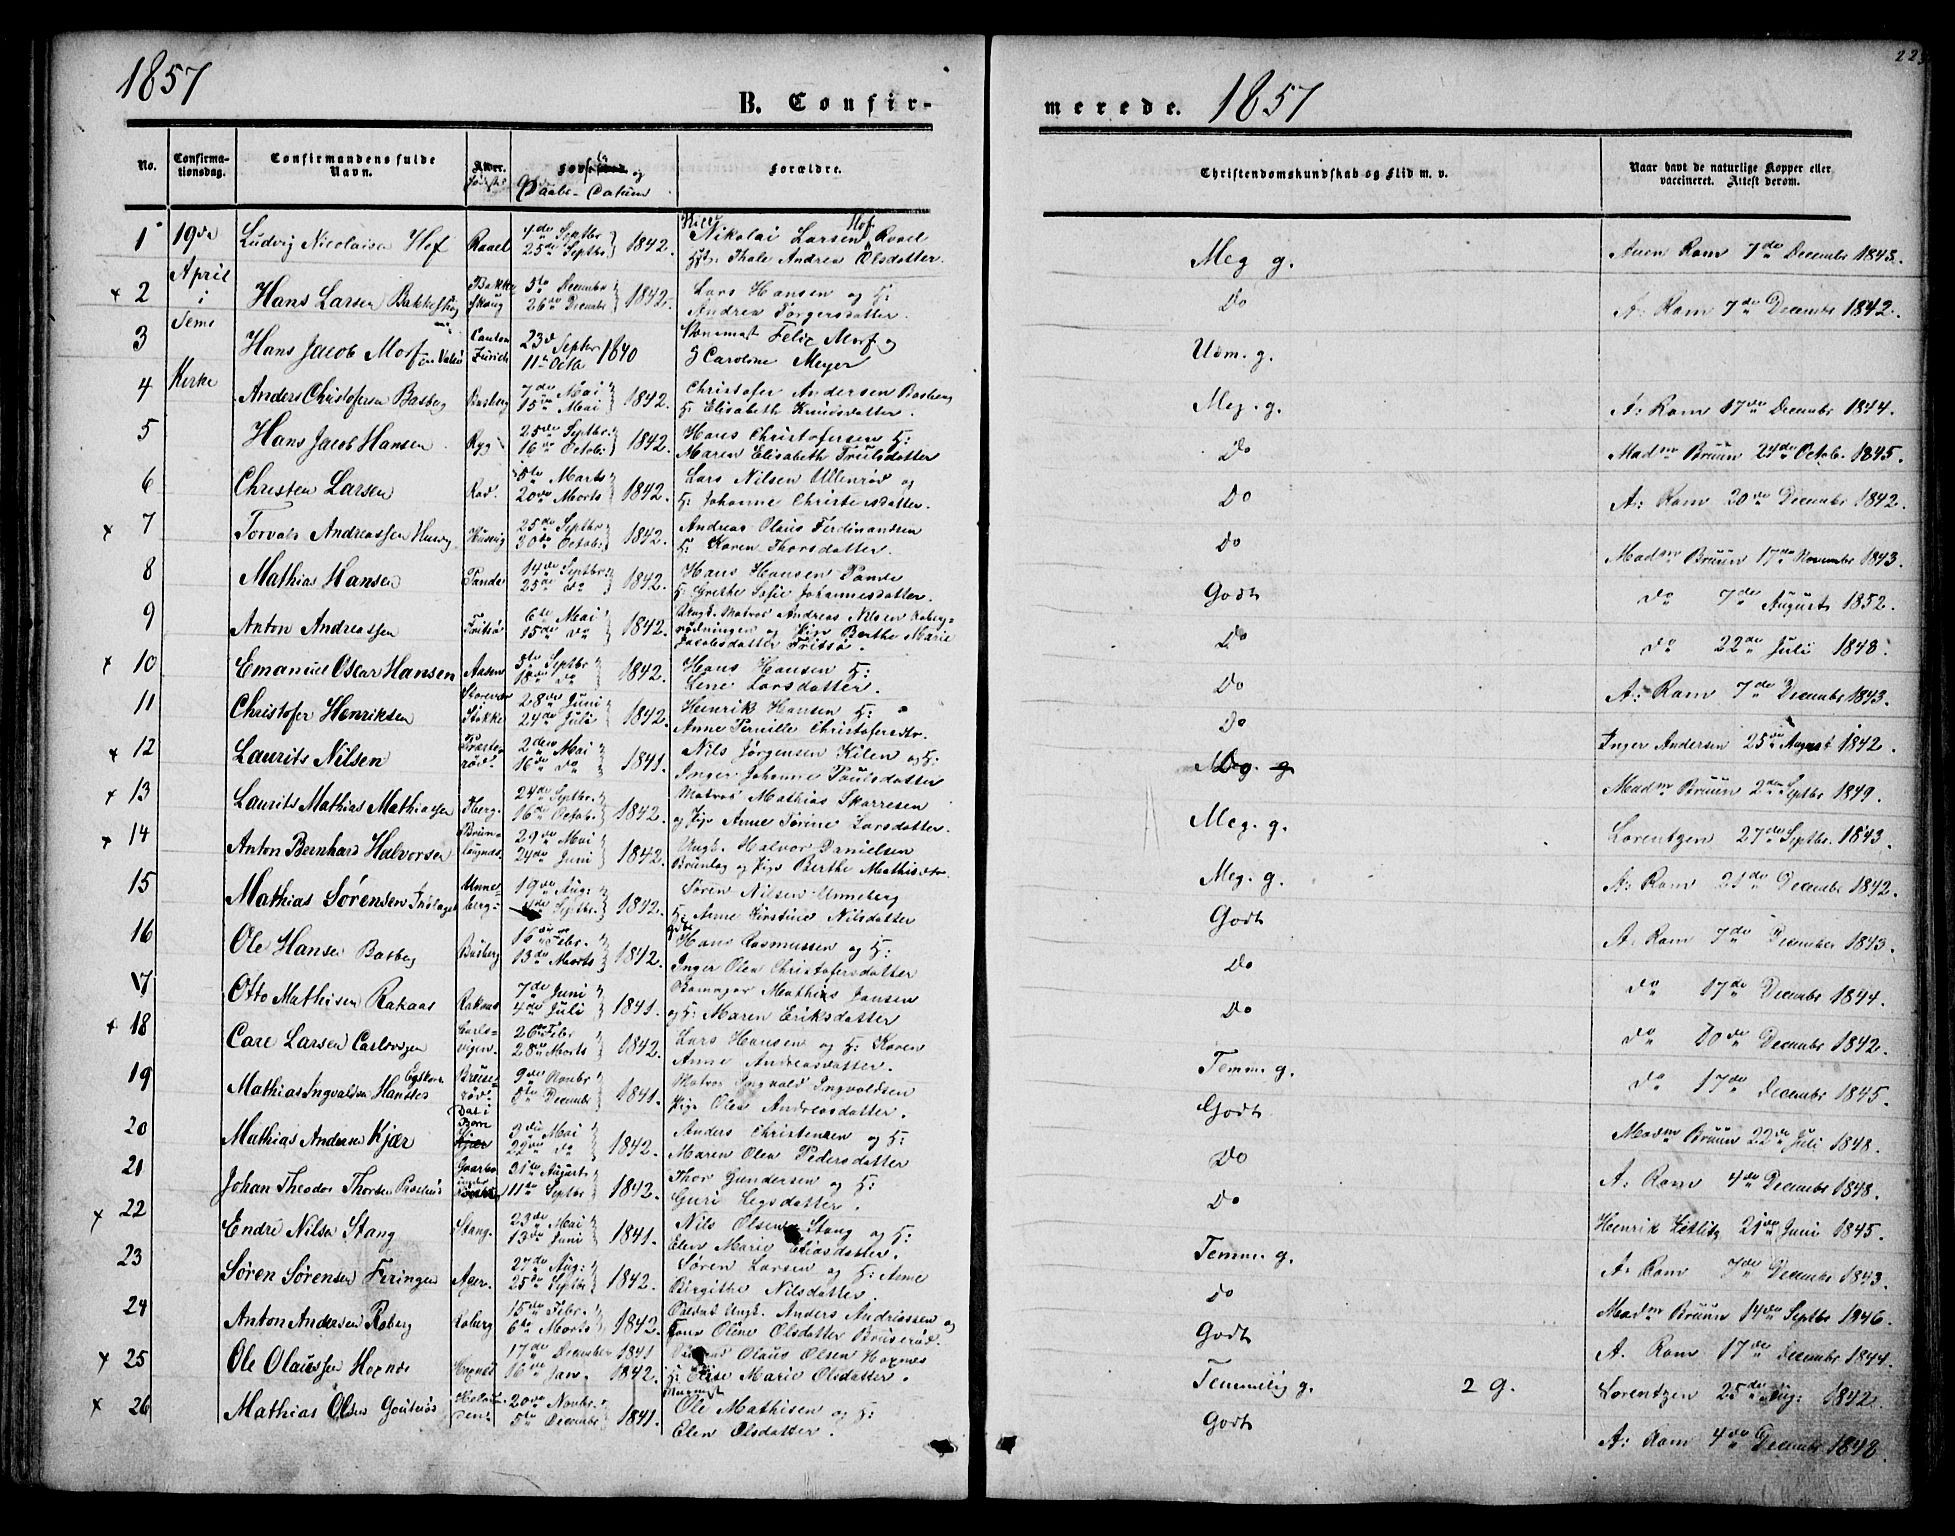 1857
B. Confir-
No.
Confirma-
tionsdag.
Confirmandens fulde
Navn.
Alder.
og
Daabs-Datum
Forældre.
1 19de Ludvig Nicolaisen Hof Raael 4de Septbr 25de Septbr 1842. Nikolai Larsen Hof Raael
Thale Andrea Olsdatter.
April
2 i Hans Larsen Bakkeskoug Bakke Skoug 5te Decembr 26de Decembr 1842. Lars Hansen og H:
Andrea Torgersdatter.
3 Sems Hans Jacob Morf Canton Zürich 23d Septbr 11te Octb 1840 Felix Morf og
Caroline Meyer
Kirke
4 Anders Christofersen Basberg Basberg 7de Mai 15de Mai 1842. Christofer Andersen Basberg
H: Elisabeth Knudsdatter.
5 Hans Jacob Hansen Ryg 25de Septbr: 16de Octob: 1842. Hans Christofersen H:
Maren Elisabeth Truulsdatter
6 Christen Larsen Rød. 8de Marts 20de Marts 1842. Lars Nilsen Ullenrød og
H: Johanne Christensdatter.
7 Torvald Andreassen Husvig Husvig 25de Septbr 30de Octob: 1842. Andreas Olaus Ferdinandsen
H: Karen Thorsdatter.
8 Mathias Hansen Tande 14de Septbr: 25de do 1842. Hans Hansen Tande
H: Grethe Sofie Johannesdatter.
9 Anton Andreassen Fritsø 6te Mai 15de do 1842. Ungk. Matros Andreas Nilsen
og Pige Berthe Marie
Jacobsdatter Fritsø.
10 Emanuel Oscar Hansen Aasen 5te Septbr 18de do 1842. Hans Hansen H:
Lene Larsdatter.
11 Christofer Henriksen Stokke 28de Juni 24de Juli 1842. Henrik Hansen H:
Anne Pernille Christofersdtr.
12 Laurits Nilsen 2den Mai 16de do 1841. Nils Jørgensen Kilen og H:
Inger Johanne Paulsdatter
13 Laurits Mathias Mathiassen Kberg. 24de Septbr. 16de Octob: 1842. Matros Mathias Skarresen
og Pige Anne Torine Larsdatter.
14 Anton Bernhard Halvorsen Brunlougnæs. 29de Mai 24de Juni 1842. Ungk. Halvor Danielsen
Brunlag og Pige Berthe Mathisdtr.
15 Mathias Sørensen Unneberg 19de Aug: Septbr. 1842. Søren Nilsen Unneberg
H: Anne Kirstine Nilsdatter
16 Ole Hansen Basberg Basberg 16de Febr. 13de Marts 1842. Hans Rasmussen og H:
Inger Olea Christofersdatter
17 Otto Mathisen Rakaas Rakaas 7de Juni 4de Juli 1841. Mathias Jansen
og H: Maren Eriksdatter
18 Carl Larsen Carlsvigen Carlsvigen. 26de Febr 28de Marts 1842. Lars Hansen og H: Karen
Anne Andreasdatter.
19 Mathias Ingvaldsen 9de Novbr 5te Decembr 1841. Matros Ingvald Ingvaldsen
Pige Olea Andreasdatter.
20 Mathias Andersen Kjær Kjær 9de Mai 22de do 1842. Anders Christensen og H:
Maren Olea Pedersdatter
21 Johan Theodor Thorsen 31te August 11te Septbr 1842. Thor Gundersen og H:
Guri Legsdatter.
22 Endre Nilsen Stang Stang. 23de Mai 13de Juni 1841. Nils Olsen Stang og H:
Elen Marie Eliasdatter.
23 Søren Sørensen Feringen Ager. 27de Aug: 25de Septbr 1842. Søren Larsen og H: Anne
Birgitte Nilsdatter.
24 Anton Andersen Roberg Roberg 15de Febr. 6te Marts 1842. Ungk. Anders Andreassen og
Oline Olsdatter Bruserød.
25 Ole Olaussen Hoxnæs Hoxnæs 17de December 1841 16de Jan. 1842. Olaus Olsen Hoxnæs
H: Elise Marie Olsdatter.
26 Mathias Olsen 20de Novbr. 5te Decembr 1841. Ole Mathisen og H:
Elen Olsdatter.
merede. 1857
Christendomskundskab og Flid m. v.
Naar havt de naturlige Kopper eller
vaccineret. Attest derom.
Meg g. Auen Ram 7de December 1843.
Do A: Ram 7de Decembr 1842.
Udm. g.
Meg. g. A: Ram 17de Decembr 1844.
Do Madm Bruun 24de Octob. 1845.
Do A: Ram 20de Decembr 1842.
Do Madm Bruun 17de November 1843.
Godt do 7de August 1852.
Do do 22de Juli 1848.
Do A: Ram 7de Decembr 1843.
Do Inger Andersen 25de August 1842.
Do Madm Bruun 2de Septbr 1849.
Meg. g. Lorentzen 27de Septbr. 1843.
Meg. g. A: Ram 21de Decembr 1842.
Godt A: Ram 7de December 1843.
Do do 17de Decembr 1844.
Do do 10de Decembr 1842.
Temm. g. do 17de Decembr 1845.
Godt Madm Bruun 22de Juli 1848.
Do A: Ram 4de Decembr 1848.
Do Henrik Zetlitz 21de Juni 1845.
Temm. g. A: Ram 7de Decembr 1843.
Do Madm Bruun 14de Septbr 1846.
Godt A. Ram 17de Decembr 1844.
Temmelig g. 2 g. Lorentzen 25de Aug: 1842.
Godt A: Ram 4de Decembr 1848.